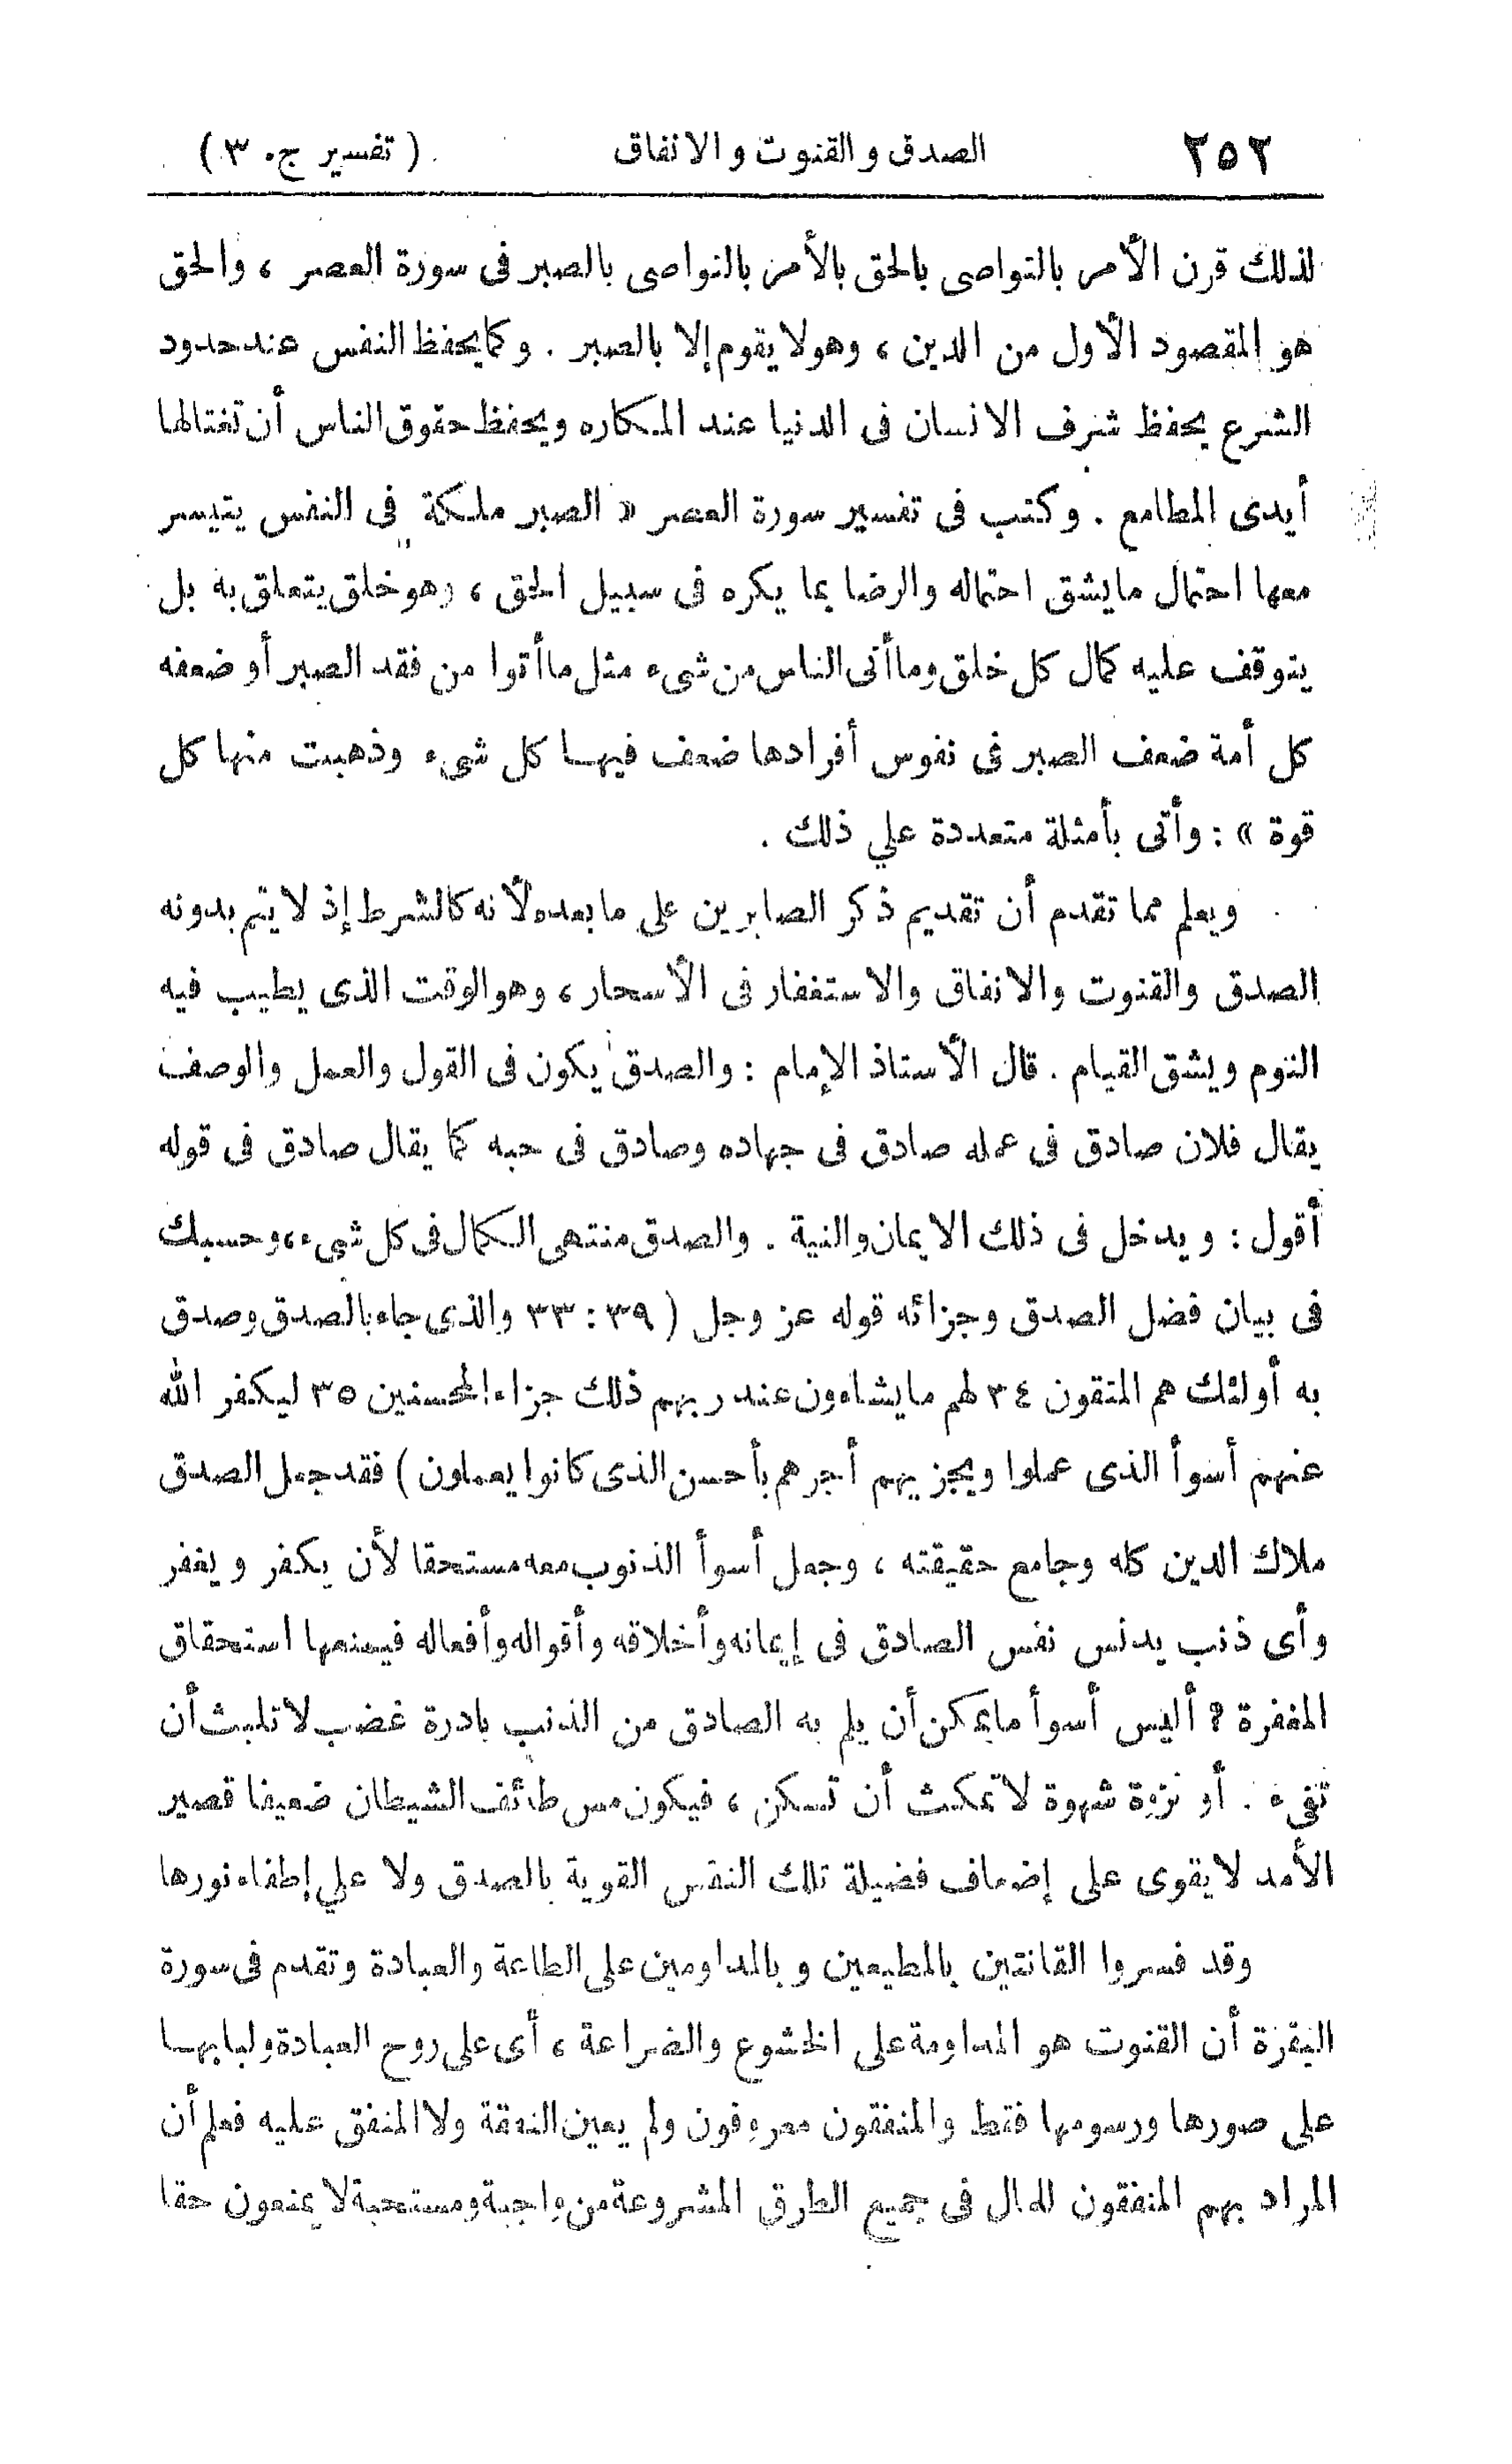 ٢٥٢ الصدق والقنوت والانفاق ( تفسير ج. ٣ )
لذلك قرن الأمر بالتواصى بالحق بالأمر بالتواصى بالصبر فى سورة العصر ، والحق
هو المقصود الأول من الدين ، وهو لا يقوم إلا بالصبر . وكما يحفظ النفس عند حدود
الشرع يحفظ شرف الانسان فى الدنيا عند المكاره ويحفظ حقوق الناس أن تغتالها
أيدى المطامع . وكتب فى تفسير سورة العصر « الصبر ملكة فى النفس يتيسر
معها احتمال ما يشق احتماله والرضا بما يكره فى سبيل الحق ، وهو خلق يتعلق به بل
يتوقف عليه كمال كل خلق وما أتى الناس من شىء مثل ما أتوا من فقد الصبر أو ضعفه
كل أمة ضعف الصبر فى نفوس أفرادها ضعف فيها كل شىء وذهبت منها كل
قوة » : وأتى بأمثلة متعددة علي ذلك .
ويعلم مما تقدم أن تقديم ذكر الصابرين على ما بعده لأنه كالشرط إذ لا يتم بدونه
الصدق والقنوت والانفاق والاستغفار فى الأسحار ، وهو الوقت الذى يطيب فيه
النوم ويشق القيام . قال الأستاذ الإمام : والصدق يكون فى القول والعمل والوصف
يقال فلان صادق فى عمله صادق فى جهاده وصادق فى حبه كما يقال صادق فى قوله
أقول : ويدخل فى ذلك الايمان والنية . والصدق منتهى الكمال فى كل شىء ، وحسبك
فى بيان فضل الصدق وجزائه قوله عز وجل ( ٣٩ : ٣٣ والذى جاء بالصدق وصدق
به أولئك هم المتقون ٣٤ لهم ما يشاءون عند ربهم ذلك جزاء المحسنين ٣٥ ليكفر الله
عنهم أسوأ الذى عملوا ويجزيهم أجرهم بأحسن الذى كانوا يعملون ) فقد جعل الصدق
ملاك الدين كله وجامع حقيقته ، وجعل أسوأ الذنوب معه مستحقا لأن يكفر ويغفر
وأى ذنب يدنس نفس الصادق فى إيمانه وأخلاقه وأقواله وأفعاله فيمنعها استحقاق
المغفرة ؟ أليس أسوأ ما يمكن أن يلم به الصادق من الذنب بادرة غضب لا تلبث أن
تفىء . أو نزوة شهوة لا تمكث أن تسكن ، فيكون مس طائف الشيطان ضعيفا قصير
الأمد لا يقوى على إضعاف فضيلة تلك النفس القوية بالصدق ولا علي إطفاء نورها
وقد فسروا القانتين بالمطيعين وبالمداومين على الطاعة والعبادة وتقدم فى سورة
البقرة أن القنوت هو المداومة على الخشوع والضراعة ، أى على روح العبادة ولبابها
على صورها ورسومها فقط والمنفقون معروفون ولم يعين النفقة ولا المنفق عليه فعلم أن
المراد بهم المنفقون للمال فى جميع الطرق المشروعة من واجبة ومستحبة لا يمنعون حقا